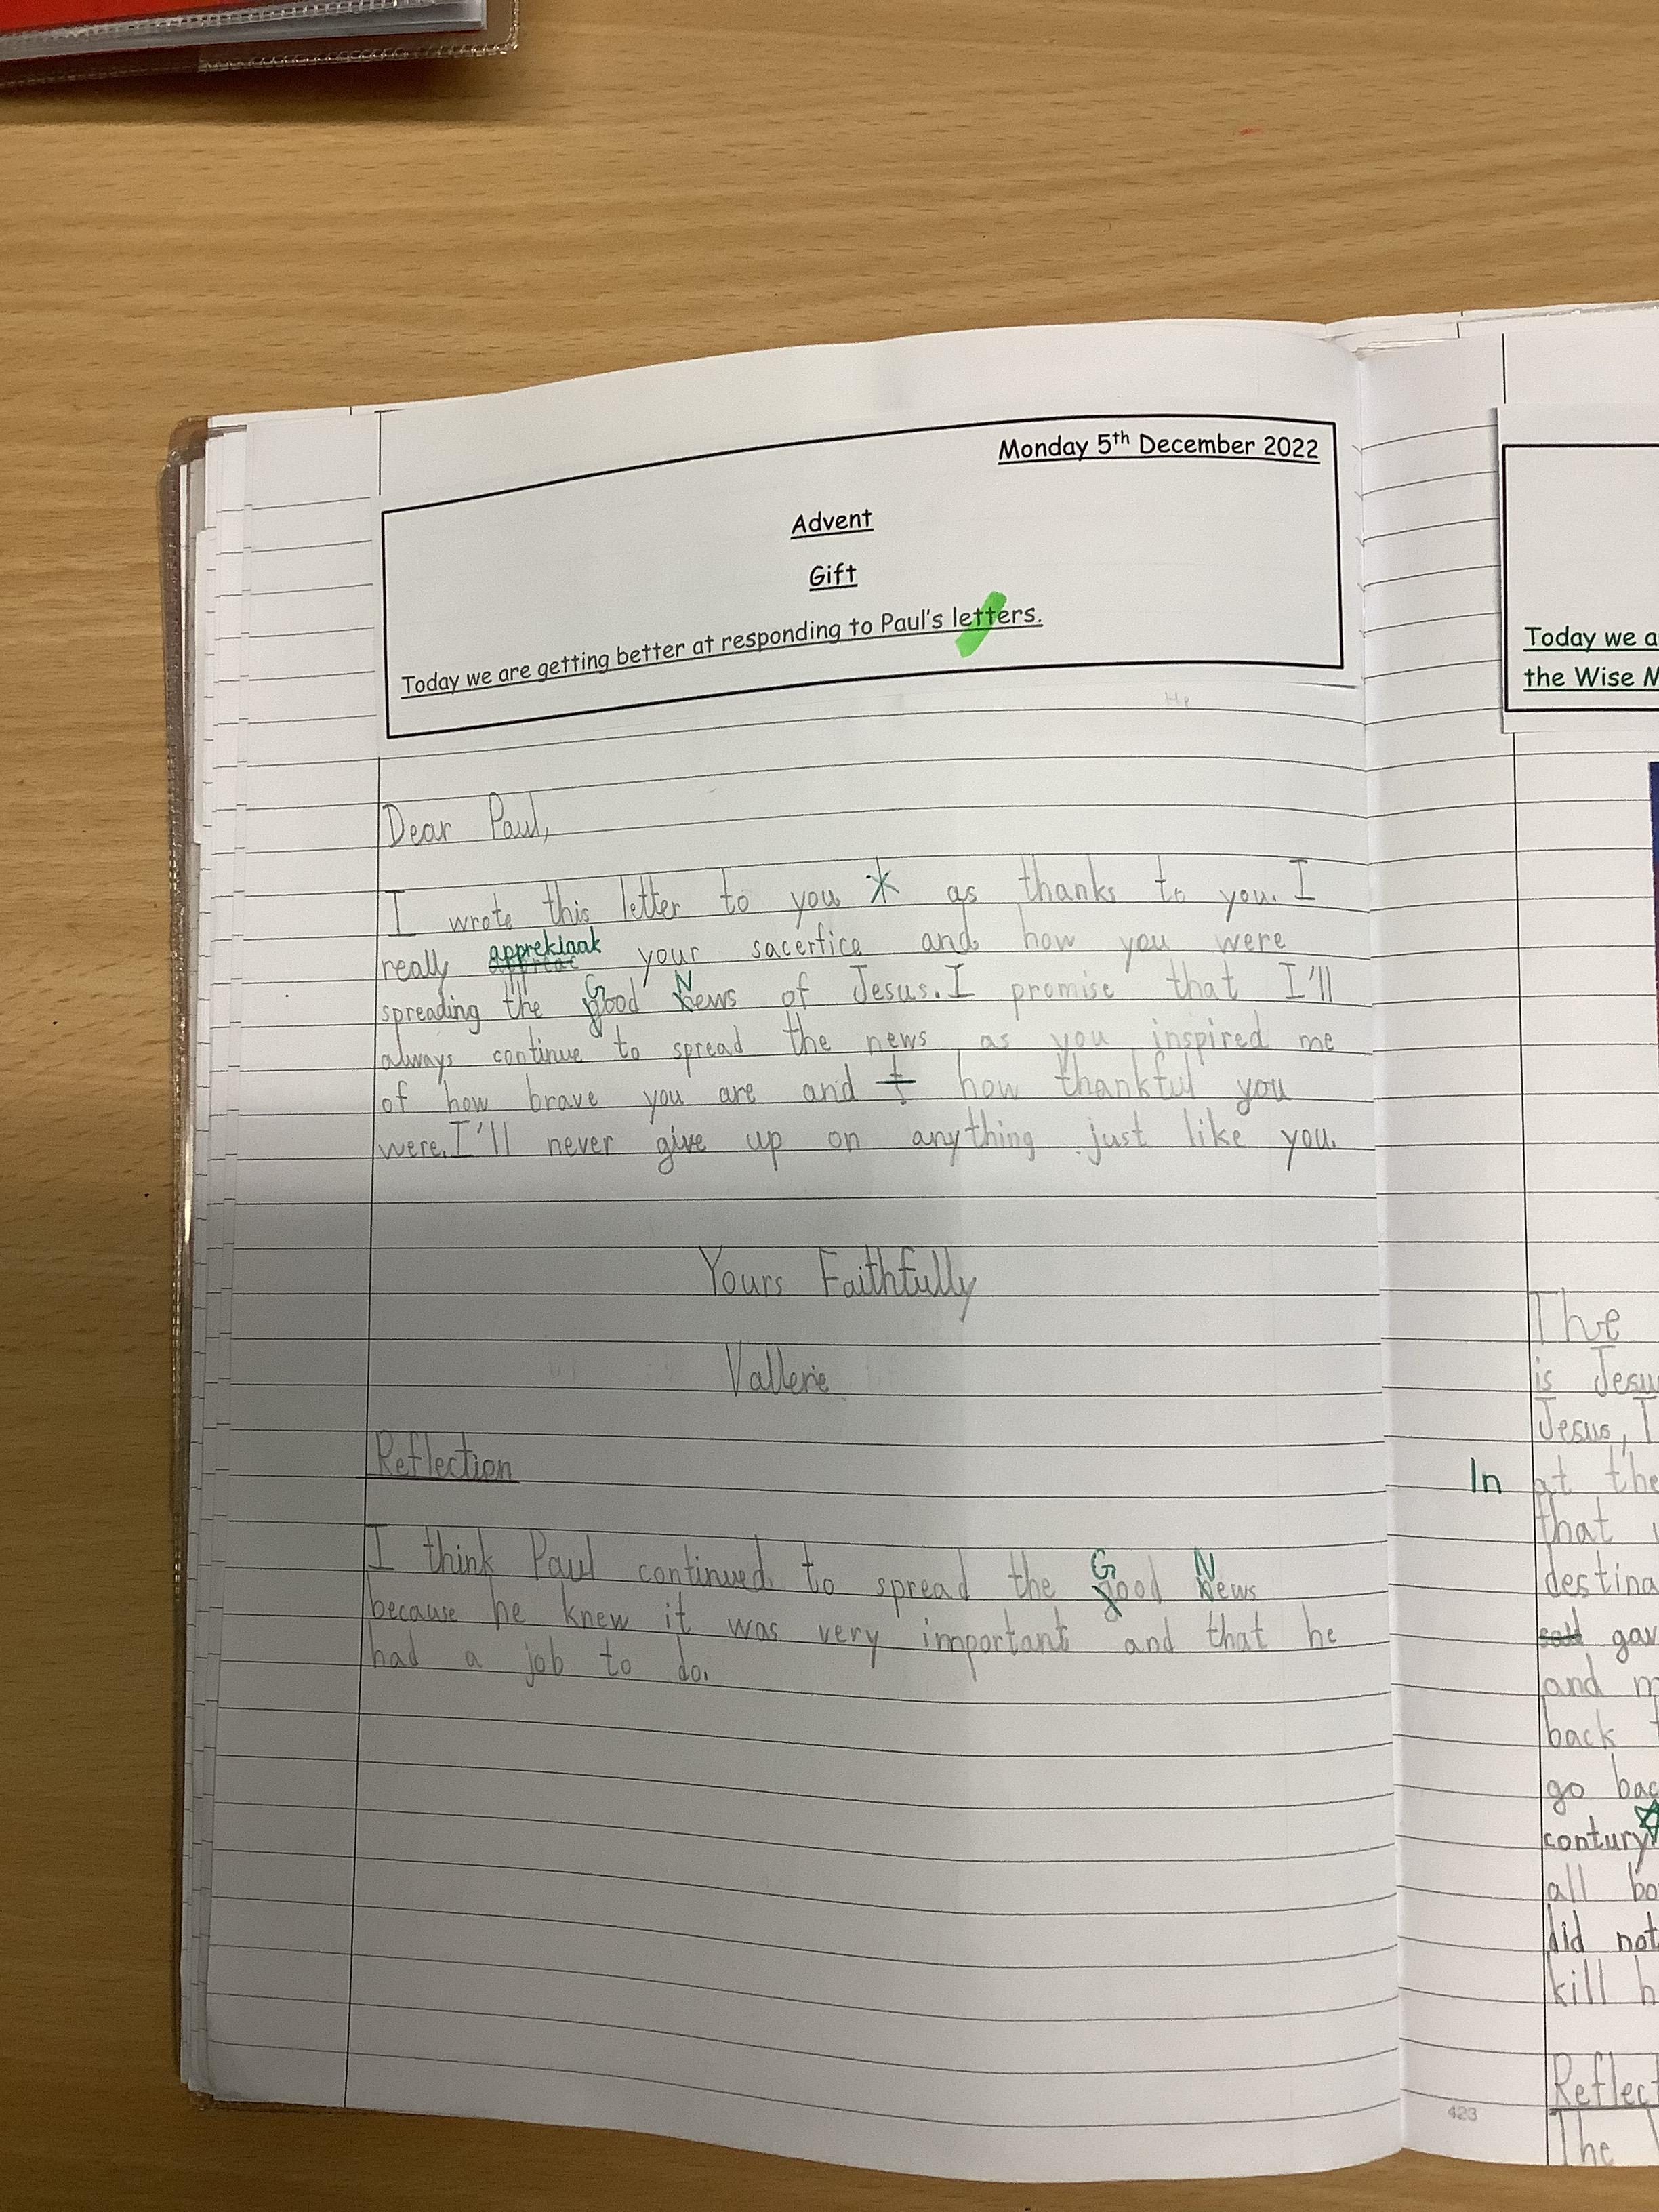 Monday 5th December 2022
Advent
Gift
Today we are getting better at responding to Paul's letters.
Dear Paul,
I wrote this letter to you * as thanks to you. I
really appreklaak your sacerfice and how you were
spreading the Good News of Jesus. I promise that I'll
always continue to spread the news as you inspired me
of how brave you are and how thankful you
were. I'll never give up on anything just like you.
Yours Faithfully
Vallerie
Reflection
I think Paul continued to spread the Good News
because he knew it was very important and that he
had a job to do.
Today we a
the Wise M
The
is Jesu
Jesus, I
In at the
that
destina
gav
and m
back t
go bac
contury
all bo
did not
kill h
Reflect
423
The